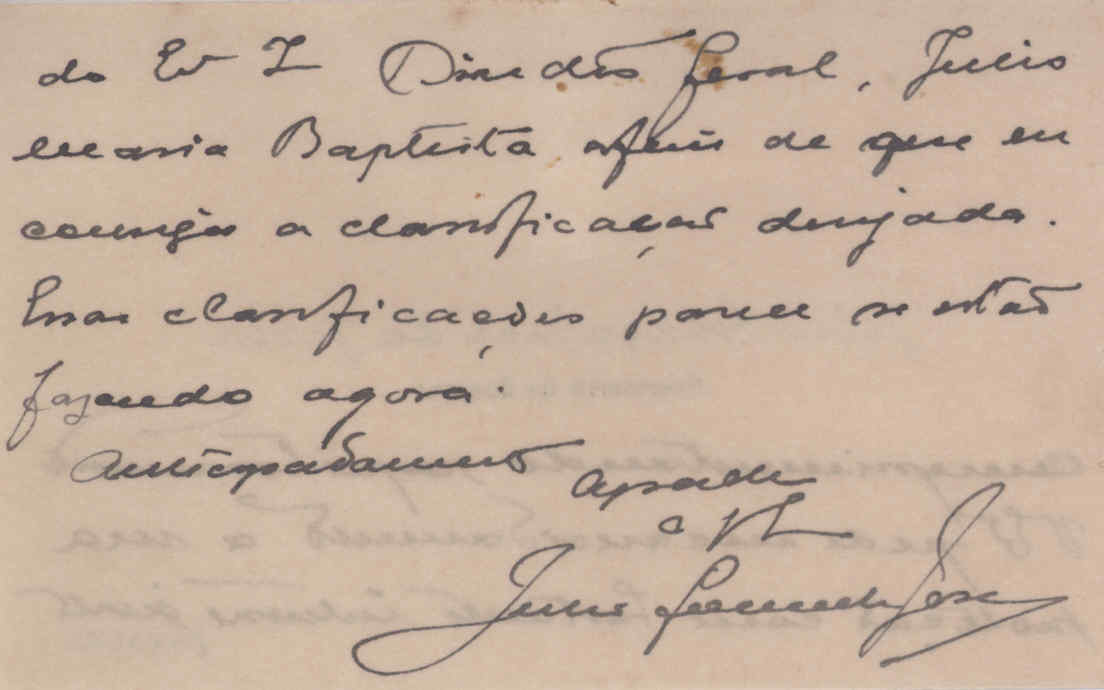 do Ex Director Geral, Julio
Maria Baptista afim de que eu
consiga a classificação desejada.
Essas classificações parece se estão
fazendo agora.
Antecipadamente
agradece
Julio